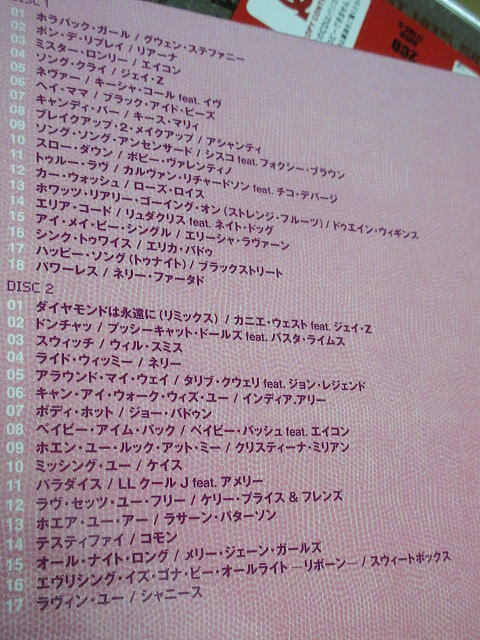 DISC 1
01 ホラバック・ガール / グウェン・ステファニー
02 ポン・デ・リプレイ / リアーナ
03 ミスター・ロンリー / エイコン
04 ソング・クライ / ジェイ・Z
05 ネヴァー / キーシャ・コール feat. イヴ
06 ヘイ・ママ / ブラック・アイド・ピーズ
07 キャンディ・バー / キース・マリィ
08 ブレイクアップ・2・メイクアップ / アシャンティ
09 ソング・ソング・アンセンサード / シスコ feat. フォクシー・ブラウン
10 スロー・ダウン / ボビー・ヴァレンティノ
11 トゥルー・ラヴ / カルヴァン・リチャードソン feat. チコ・デバージ
12 カー・ウォッシュ / ローズ・ロイス
13 ホワッツ・リアリー・ゴーイング・オン (ストレンジ・フルーツ) / ドゥエイン・ウィギンス
14 エリア・コード / リュダクリス feat. ネイト・ドッグ
15 アイ・メイ・ビー・シングル / エリーシャ・ラヴァーン
16 シンク・トゥワイス / エリカ・バドゥ
17 ハッピー・ソング (トゥナイト) / ブラックストリート
18 パワーレス / ネリー・ファータド
DISC 2
01 ダイヤモンドは永遠に (リミックス) / カニエ・ウェスト feat. ジェイ・Z
02 ドンチャッ / プッシーキャット・ドールズ feat. バスタ・ライムス
03 スウィッチ / ウィル・スミス
04 ライド・ウィッミー / ネリー
05 アラウンド・マイ・ウェイ / タリブ・クウェリ feat. ジョン・レジェンド
06 キャン・アイ・ウォーク・ウィズ・ユー / インディア.アリー
07 ボディ・ホット / ジョー・バドゥン
08 ベイビー・アイム・バック / ベイビー・バッシュ feat. エイコン
09 ホエン・ユー・ルック・アット・ミー / クリスティーナ・ミリアン
10 ミッシング・ユー / ケイス
11 パラダイス / LL クール J feat. アメリー
12 ラヴ・セッツ・ユー・フリー / ケリー・プライス & フレンズ
13 ホエア・ユー・アー / ラサーン・パターソン
14 テスティファイ / コモン
15 オール・ナイト・ロング / メリー・ジェーン・ガールズ
16 エヴリシング・イズ・ゴナ・ビー・オールライト ―リボーン― / スウィートボックス
17 ラヴィン・ユー / シャニース